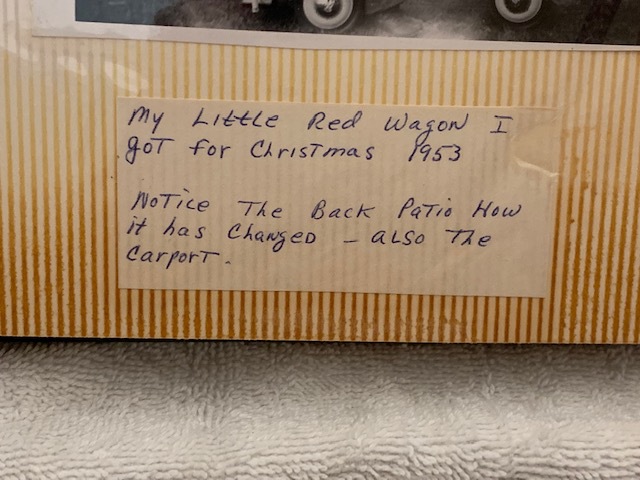 My Little Red Wagon I
got for Christmas 1953
Notice The Back Patio How
it has Changed - also The
Carport.